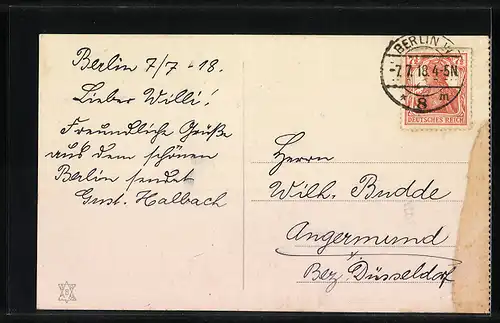 Berlin 7/7 - 18.
Lieber Willi!
Freundliche Grüße
aus dem schönen
Berlin sendet
Gust. Halbach
BERLIN W
-7.7.18.4-5N.
* 8 m
DEUTSCHES REICH
Herrn
Wilh. Budde
Angermund
Bez. Düsseldorf